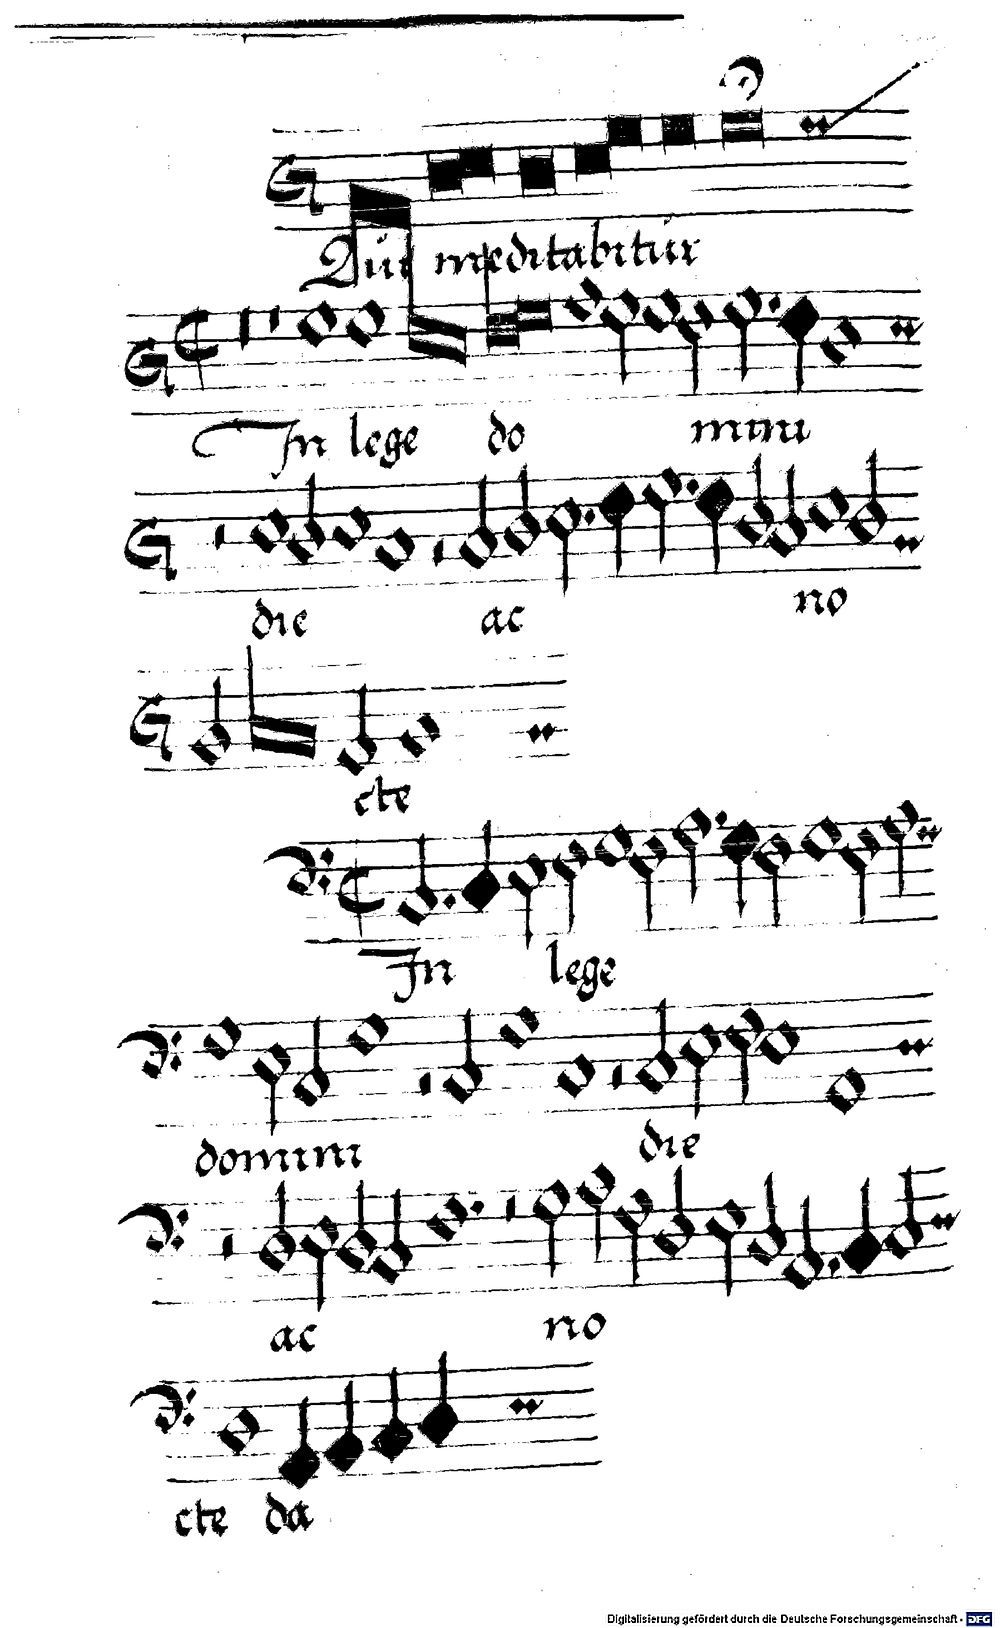 Qui meditabitur
In lege do mini
die ac no
cte
In lege
domini die
ac no
cte da
Digitalisierung gefördert durch die Deutsche Forschungsgemeinschaft - DFG